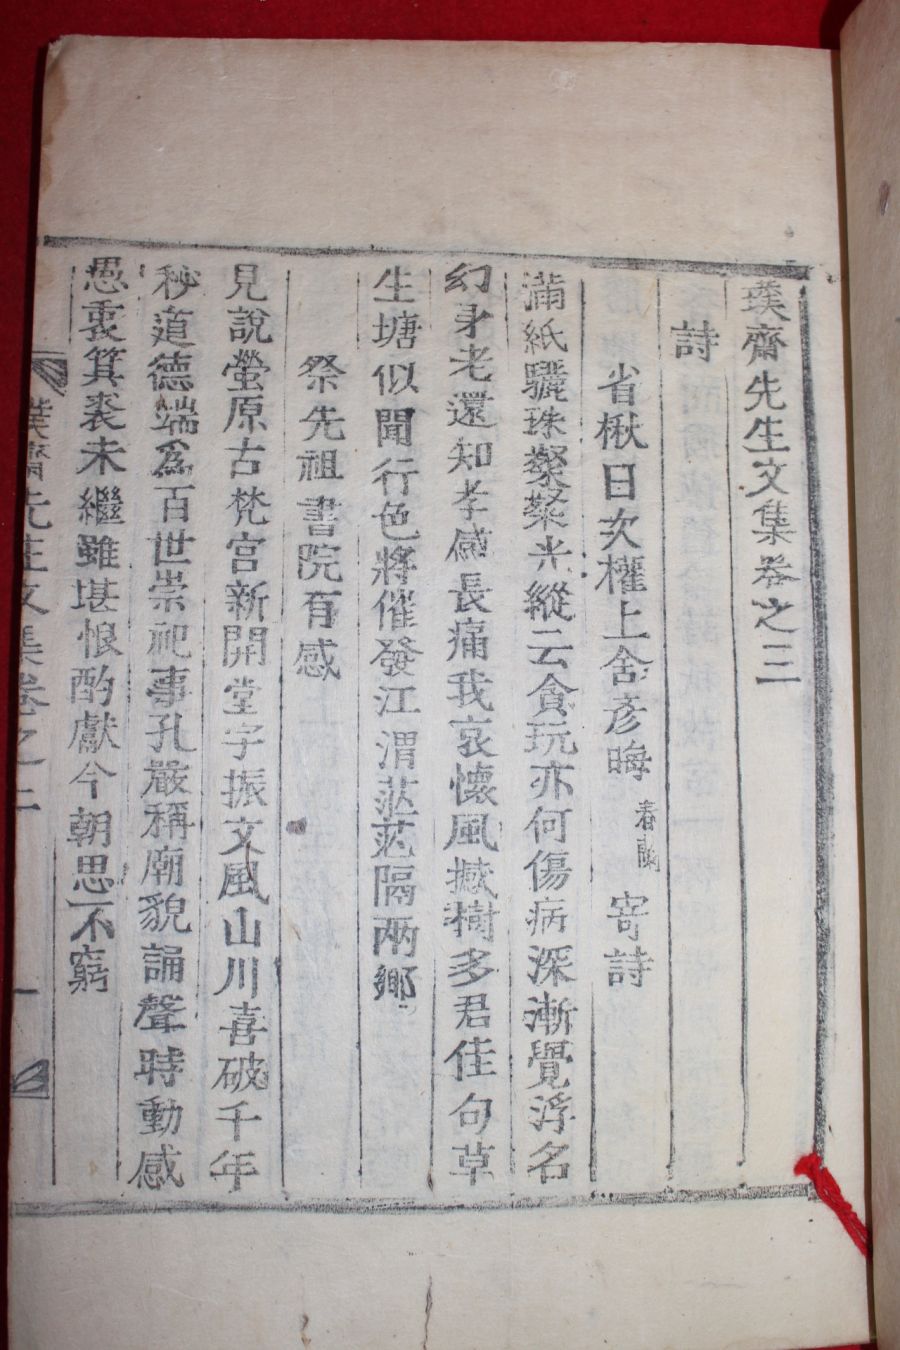 璞齋先生文集卷之三
詩
省楸日次權上舍彦晦春蘭寄詩
滿紙驪珠粲粲光縱云貪玩亦何傷病深漸覺浮名
幻身老還知孝感長痛我哀懷風撼樹多君佳句草
生塘似聞行色將催發江渭茫茫隔兩鄉
祭先祖書院有感
見說螢原古梵宮新開堂宇振文風山川喜破千年
秘道德端爲百世崇祀事孔嚴稱廟貌誦聲時動感
愚衷箕裘未繼雖堪恨酌獻今朝思不窮
璞齋先生文集卷之三 一